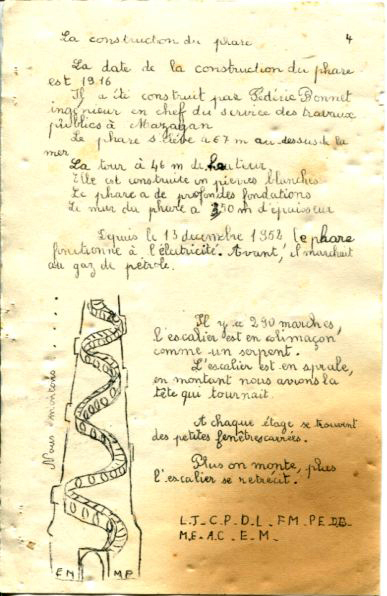 La construction du phare 4
La date de la construction du phare
est 1916
Il a été construit par Fédéric Bonnet
ingénieur en chef du service des travaux
publics à Mazagan
Le phare s'élève à 67 m au dessus de la
mer
La tour à 46 m de hauteur
Elle est construite en pierres blanches
Le phare a de profondes fondations
Le mur du phare a 50 m d'épaisseur
Depuis le 13 décembre 1954 le phare
fonctionne à l'électricité. Avant, il marchait
au gaz de pétrole.
Il y a 290 marches,
l'escalier est en colimaçon
comme un serpent.
L'escalier est en sprale,
en montant nous avions la
tête qui tournait.
A chaque étage se trouvent
des petites fenêtres carrées.
Plus on monte, plus
l'escalier se retrécit.
L_J_C_P_D_L_FM_PE_DB_
M.E_A.C_E_M_
Nous montons . . . . .
E N M P